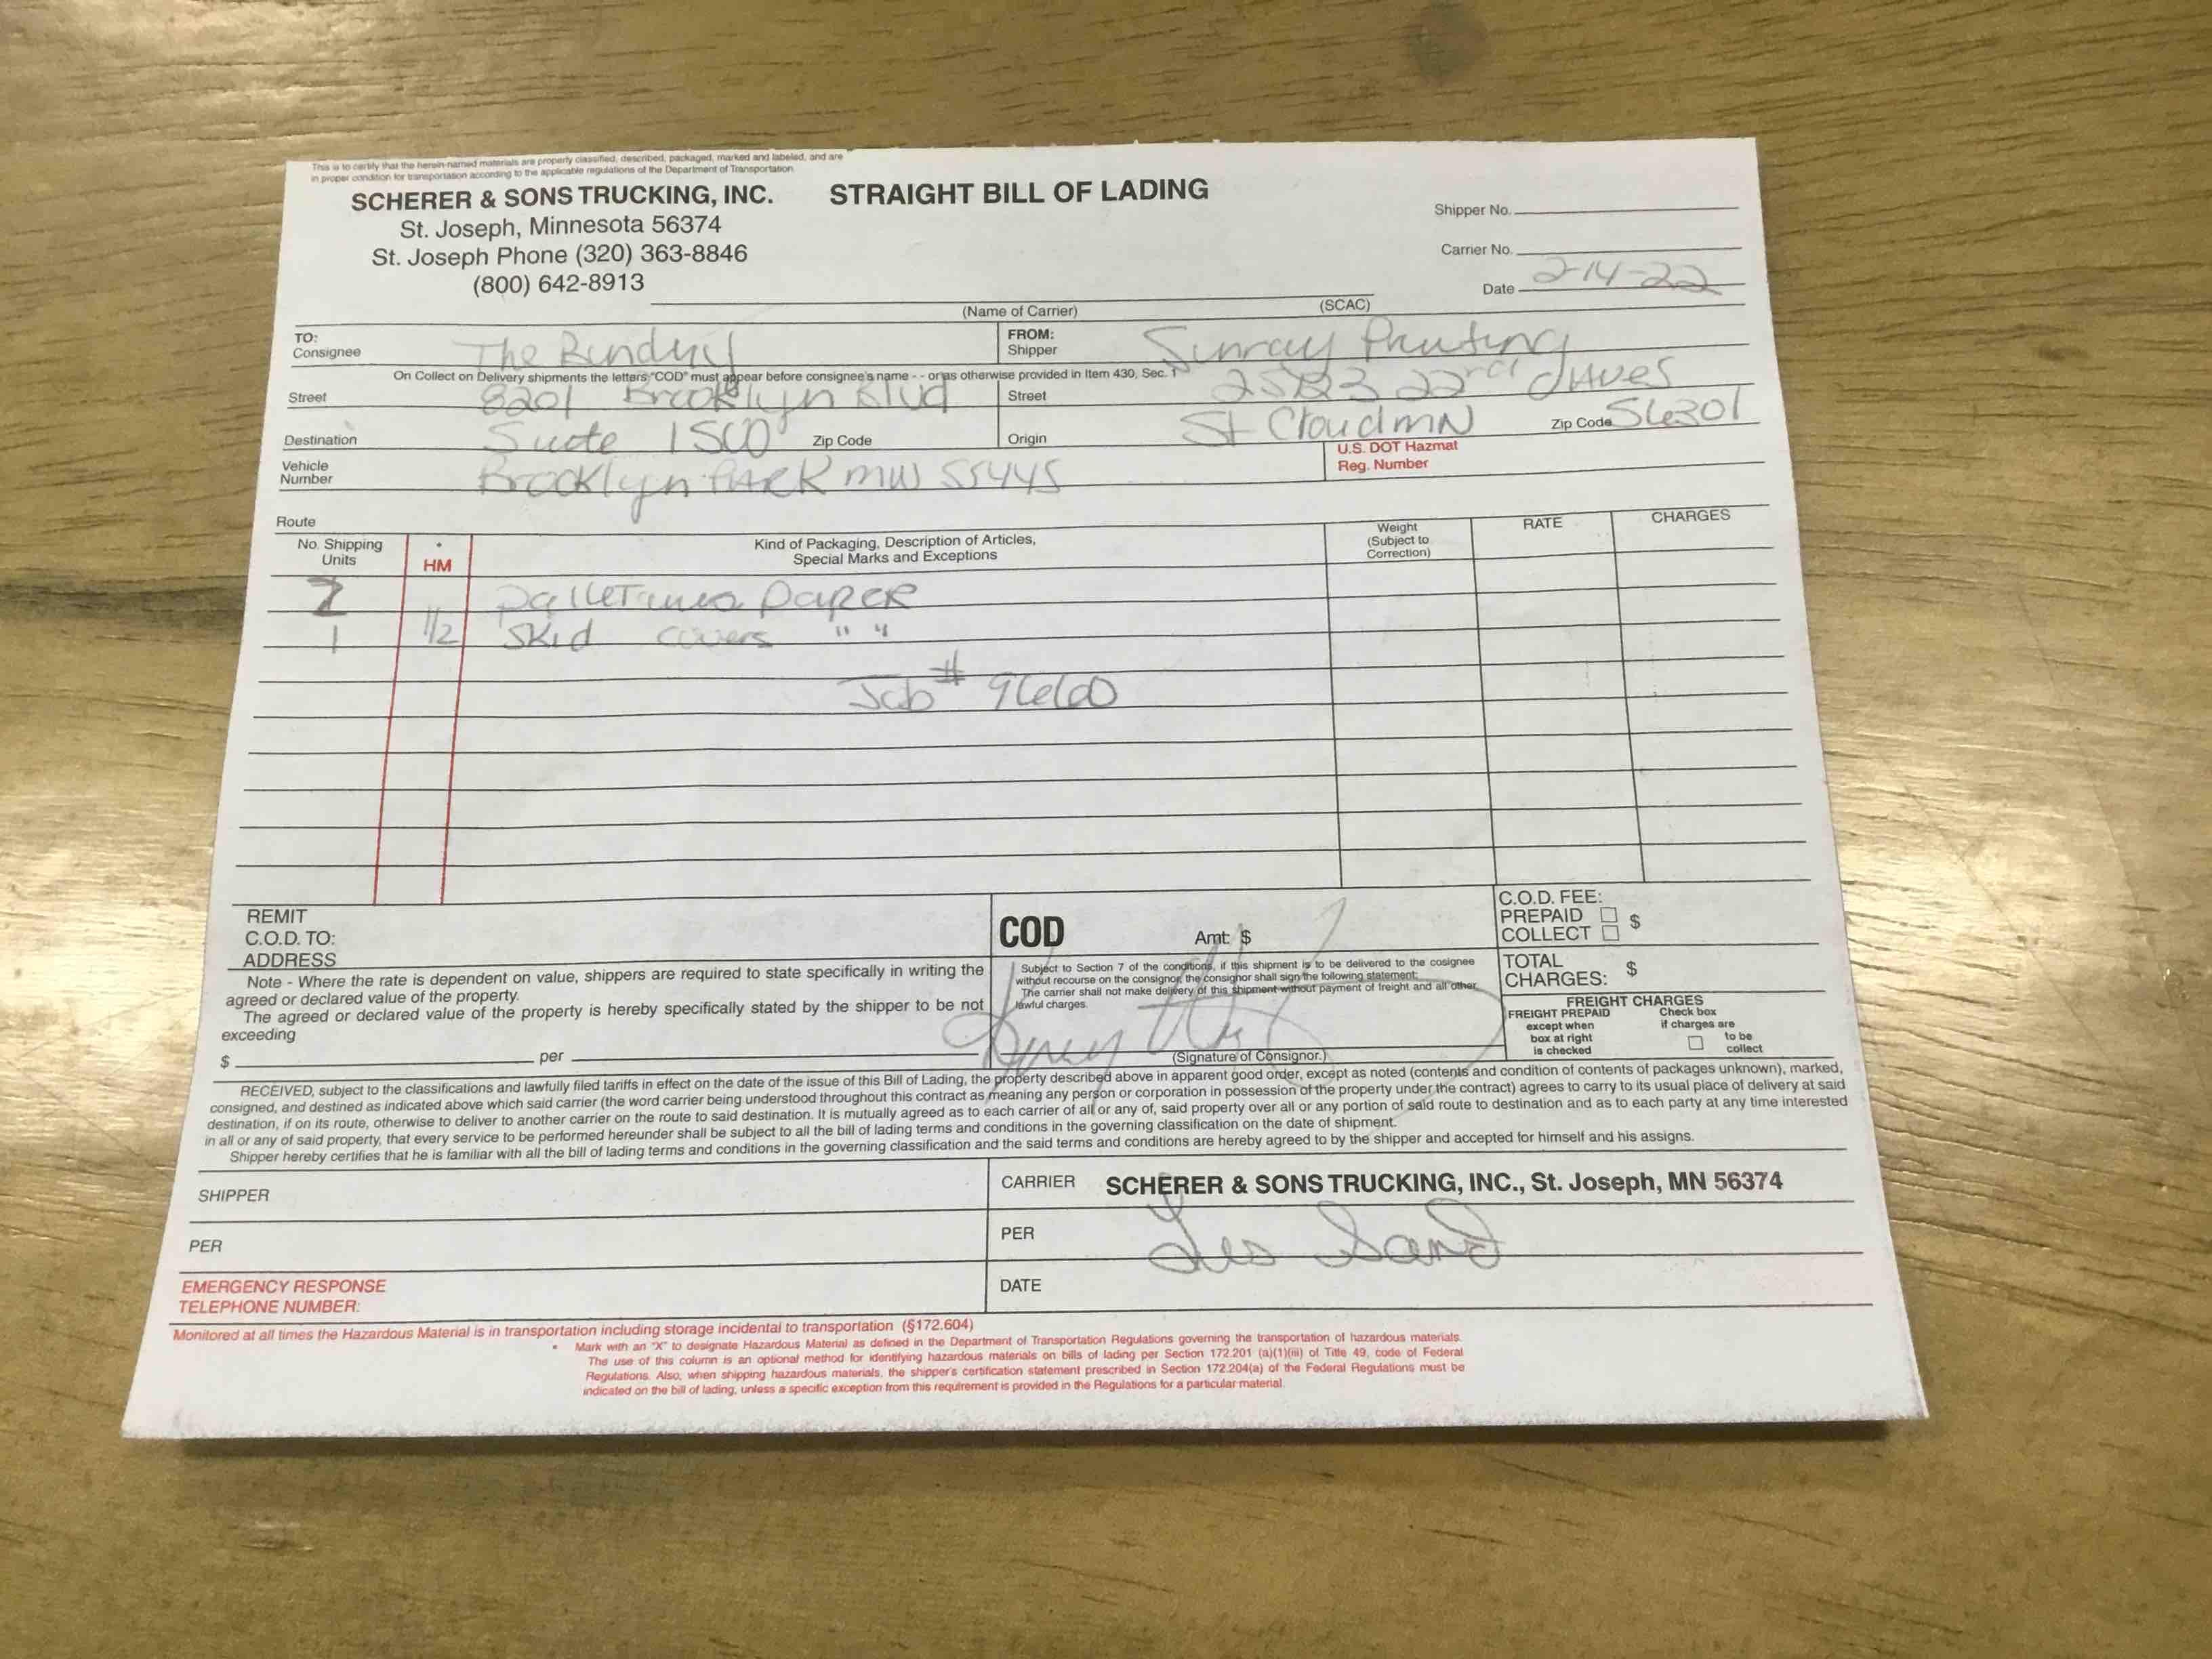 This is to certify that the herein-named materials are properly classified, described, packaged, marked and labeled, and are
in proper condition for transportation according to the applicable regulations of the Department of Transportation.
SCHERER & SONS TRUCKING, INC. STRAIGHT BILL OF LADING
St. Joseph, Minnesota 56374
St. Joseph Phone (320) 363-8846
(800) 642-8913
Shipper No.
Carrier No.
Date 2-14-22
(Name of Carrier) (SCAC)
TO:
Consignee The Bindery
FROM:
Shipper Sunray Printing
On Collect on Delivery shipments the letters "COD" must appear before consignee's name - - or as otherwise provided in Item 430, Sec. 1
Street 8201 Brooklyn Blvd
Street 22rd
Destination Suite 1500 Zip Code
Origin St Cloud MN Zip Code 56301
Vehicle
Number Brooklyn PARK MN 55445
U.S. DOT Hazmat
Reg. Number
Route
No. Shipping
Units
* HM
Kind of Packaging, Description of Articles,
Special Marks and Exceptions
Weight
(Subject to
Correction)
RATE
CHARGES
2 PAPER
1 1/2 Skid covers " "
Job #
REMIT
C.O.D. TO:
ADDRESS
COD Amt: $
C.O.D. FEE:
PREPAID $
COLLECT
Note - Where the rate is dependent on value, shippers are required to state specifically in writing the
agreed or declared value of the property.
The agreed or declared value of the property is hereby specifically stated by the shipper to be not
exceeding
$ per
Subject to Section 7 of the conditions, if this shipment is to be delivered to the cosignee
without recourse on the consignor, the consignor shall sign the following statement:
The carrier shall not make delivery of this shipment without payment of freight and all other
lawful charges.
(Signature of Consignor.)
TOTAL
CHARGES: $
FREIGHT CHARGES
FREIGHT PREPAID
except when
box at right
is checked
Check box
if charges are
to be
collect
RECEIVED, subject to the classifications and lawfully filed tariffs in effect on the date of the issue of this Bill of Lading, the property described above in apparent good order, except as noted (contents and condition of contents of packages unknown), marked,
consigned, and destined as indicated above which said carrier (the word carrier being understood throughout this contract as meaning any person or corporation in possession of the property under the contract) agrees to carry to its usual place of delivery at said
destination, if on its route, otherwise to deliver to another carrier on the route to said destination. It is mutually agreed as to each carrier of all or any of, said property over all or any portion of said route to destination and as to each party at any time interested
in all or any of said property, that every service to be performed hereunder shall be subject to all the bill of lading terms and conditions in the governing classification on the date of shipment.
Shipper hereby certifies that he is familiar with all the bill of lading terms and conditions in the governing classification and the said terms and conditions are hereby agreed to by the shipper and accepted for himself and his assigns.
SHIPPER
CARRIER SCHERER & SONS TRUCKING, INC., St. Joseph, MN 56374
PER
PER Les Sand
EMERGENCY RESPONSE
TELEPHONE NUMBER:
DATE
Monitored at all times the Hazardous Material is in transportation including storage incidental to transportation (§172.604)
* Mark with an "X" to designate Hazardous Material as defined in the Department of Transportation Regulations governing the transportation of hazardous materials.
The use of this column is an optional method for identifying hazardous materials on bills of lading per Section 172.201 (a)(1)(iii) of Title 49, code of Federal
Regulations. Also, when shipping hazardous materials, the shipper's certification statement prescribed in Section 172.204(a) of the Federal Regulations must be
indicated on the bill of lading, unless a specific exception from this requirement is provided in the Regulations for a particular material.